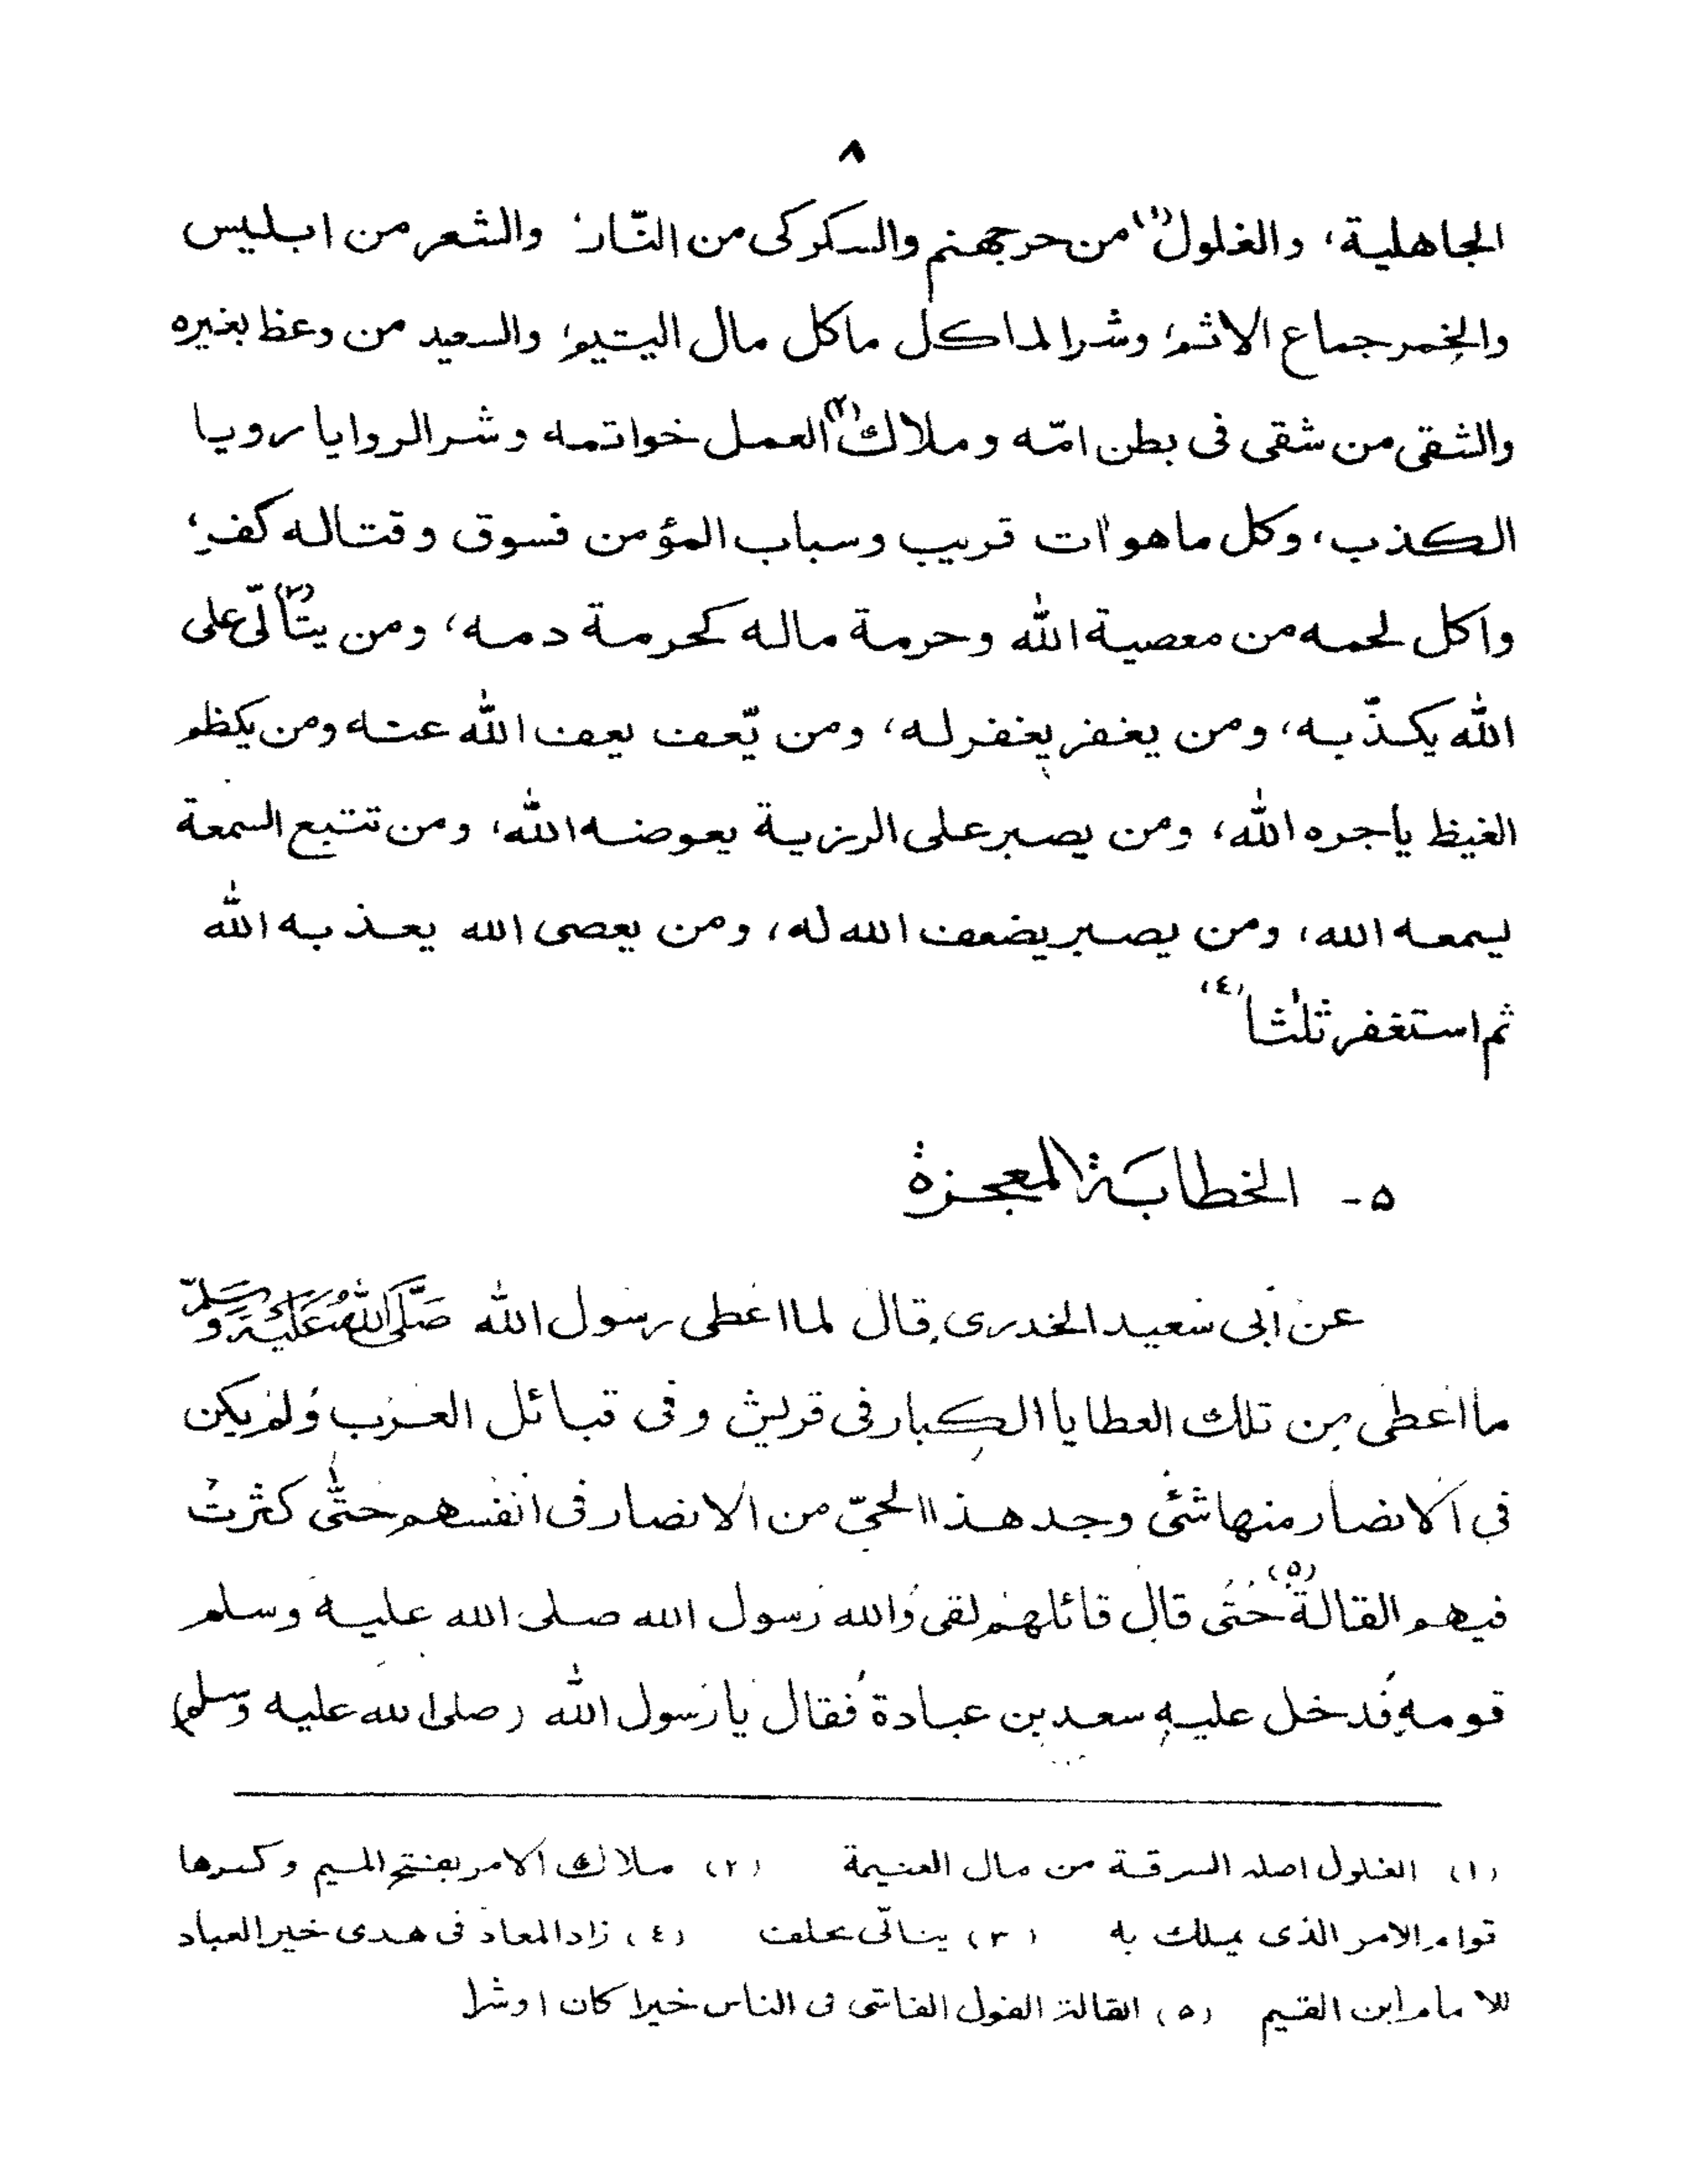 ٨
الجاهلية، والغلول(١) من حر جهنم والسكر كى من النّار، والشعر من ابليس
والخمر جماع الاثم، وشر الماكل ماكل مال اليتيم، والسعيد من وعظ بغيره
والشقى من شقى فى بطن امّه وملاك(٢) العمل خواتمه وشر الروايا رويا
الكذب، وكل ما هو اٰت قريب وسباب المؤمن فسوق وقتاله كفر،
واكل لحمه من معصية الله وحرمة ماله كحرمة دمه، ومن يتألّى(٣) على
الله يكذّبه، ومن يغفر يغفر له، ومن يّعف يعف الله عنه ومن يكظم
الغيظ ياجره الله، ومن يصبر على الرزية يعوضه الله، ومن تتبع السمعة
يسمعه الله، ومن يصبر يضعف الله له، ومن يعصى الله يعذبه الله
ثم استغفر ثلٰثا(٤)
٥- الخطابة المعجزة
عن أبى سعيد الخدرى قال لما اعطى رسول الله صَلَّى اللهُ عَلَيْهِ وَسَلَّمَ
ما اعطى من تلك العطايا الكبار فى قريش وفى قبائل العرب ولم يكن
فى الانصار منها شئ وجد هذا الحىّ من الانصار فى انفسهم حتّٰى كثرت
فيهم القالة(٥) حتى قال قائلهم لقى والله رسول الله صلى الله عليه وسلم
قومه فدخل عليه سعد بن عبادة فقال يا رسول الله (صلى الله عليه وسلم)
(١) الغلول اصله السرقة من مال الغنيمة (٢) ملاك الامر بفتح الميم وكسرها
قوام الامر الذى يملك به (٣) يتالّى يحلف (٤) زاد المعاد فى هدى خير العباد
للامام ابن القيم (٥) القالة القول الفاشى فى الناس خيرا كان او شرا